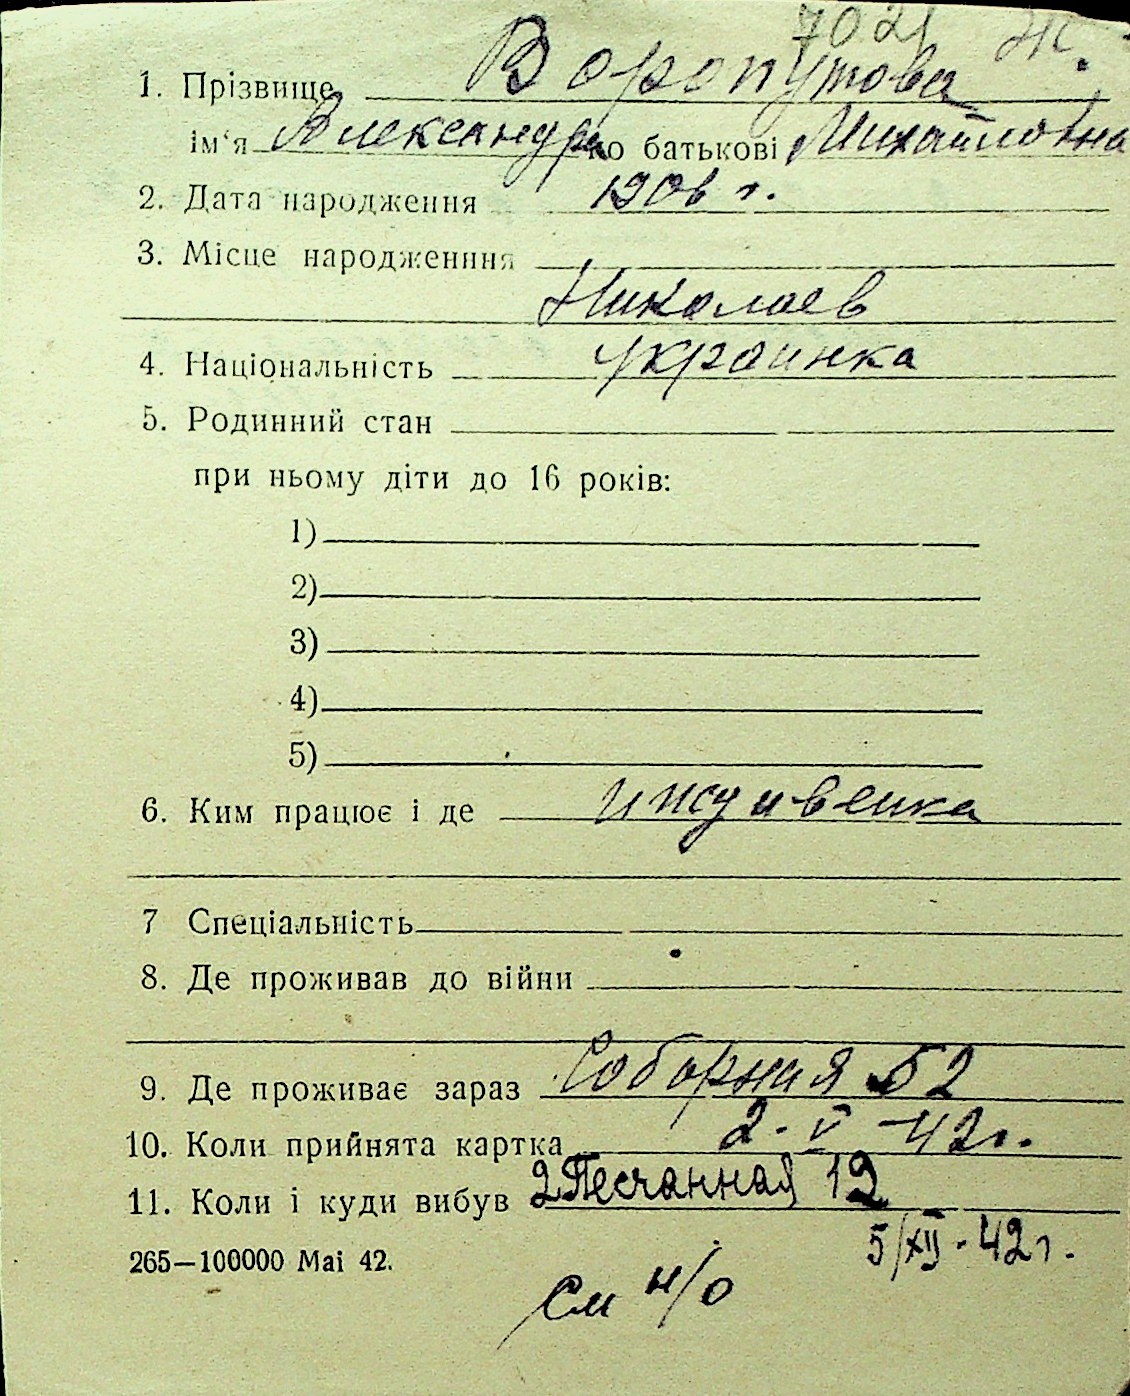 7021 Ж.
1. Прізвище Воропутова
ім'я Александра по батькові Михайловна
2. Дата народження 1906 г.
3. Місце народженння
Николаев
4. Національність украинка
5. Родинний стан
при ньому діти до 16 років:
1)
2)
3)
4)
5)
6. Ким працює і де иждивенка
7 Спеціальність
8. Де проживав до війни
9. Де проживає зараз Соборная 52
10. Коли прийнята картка 2.V-42г.
11. Коли і куди вибув 2 Песчанная 12
5/XII-42г.
265—100000 Mai 42.
См н/о